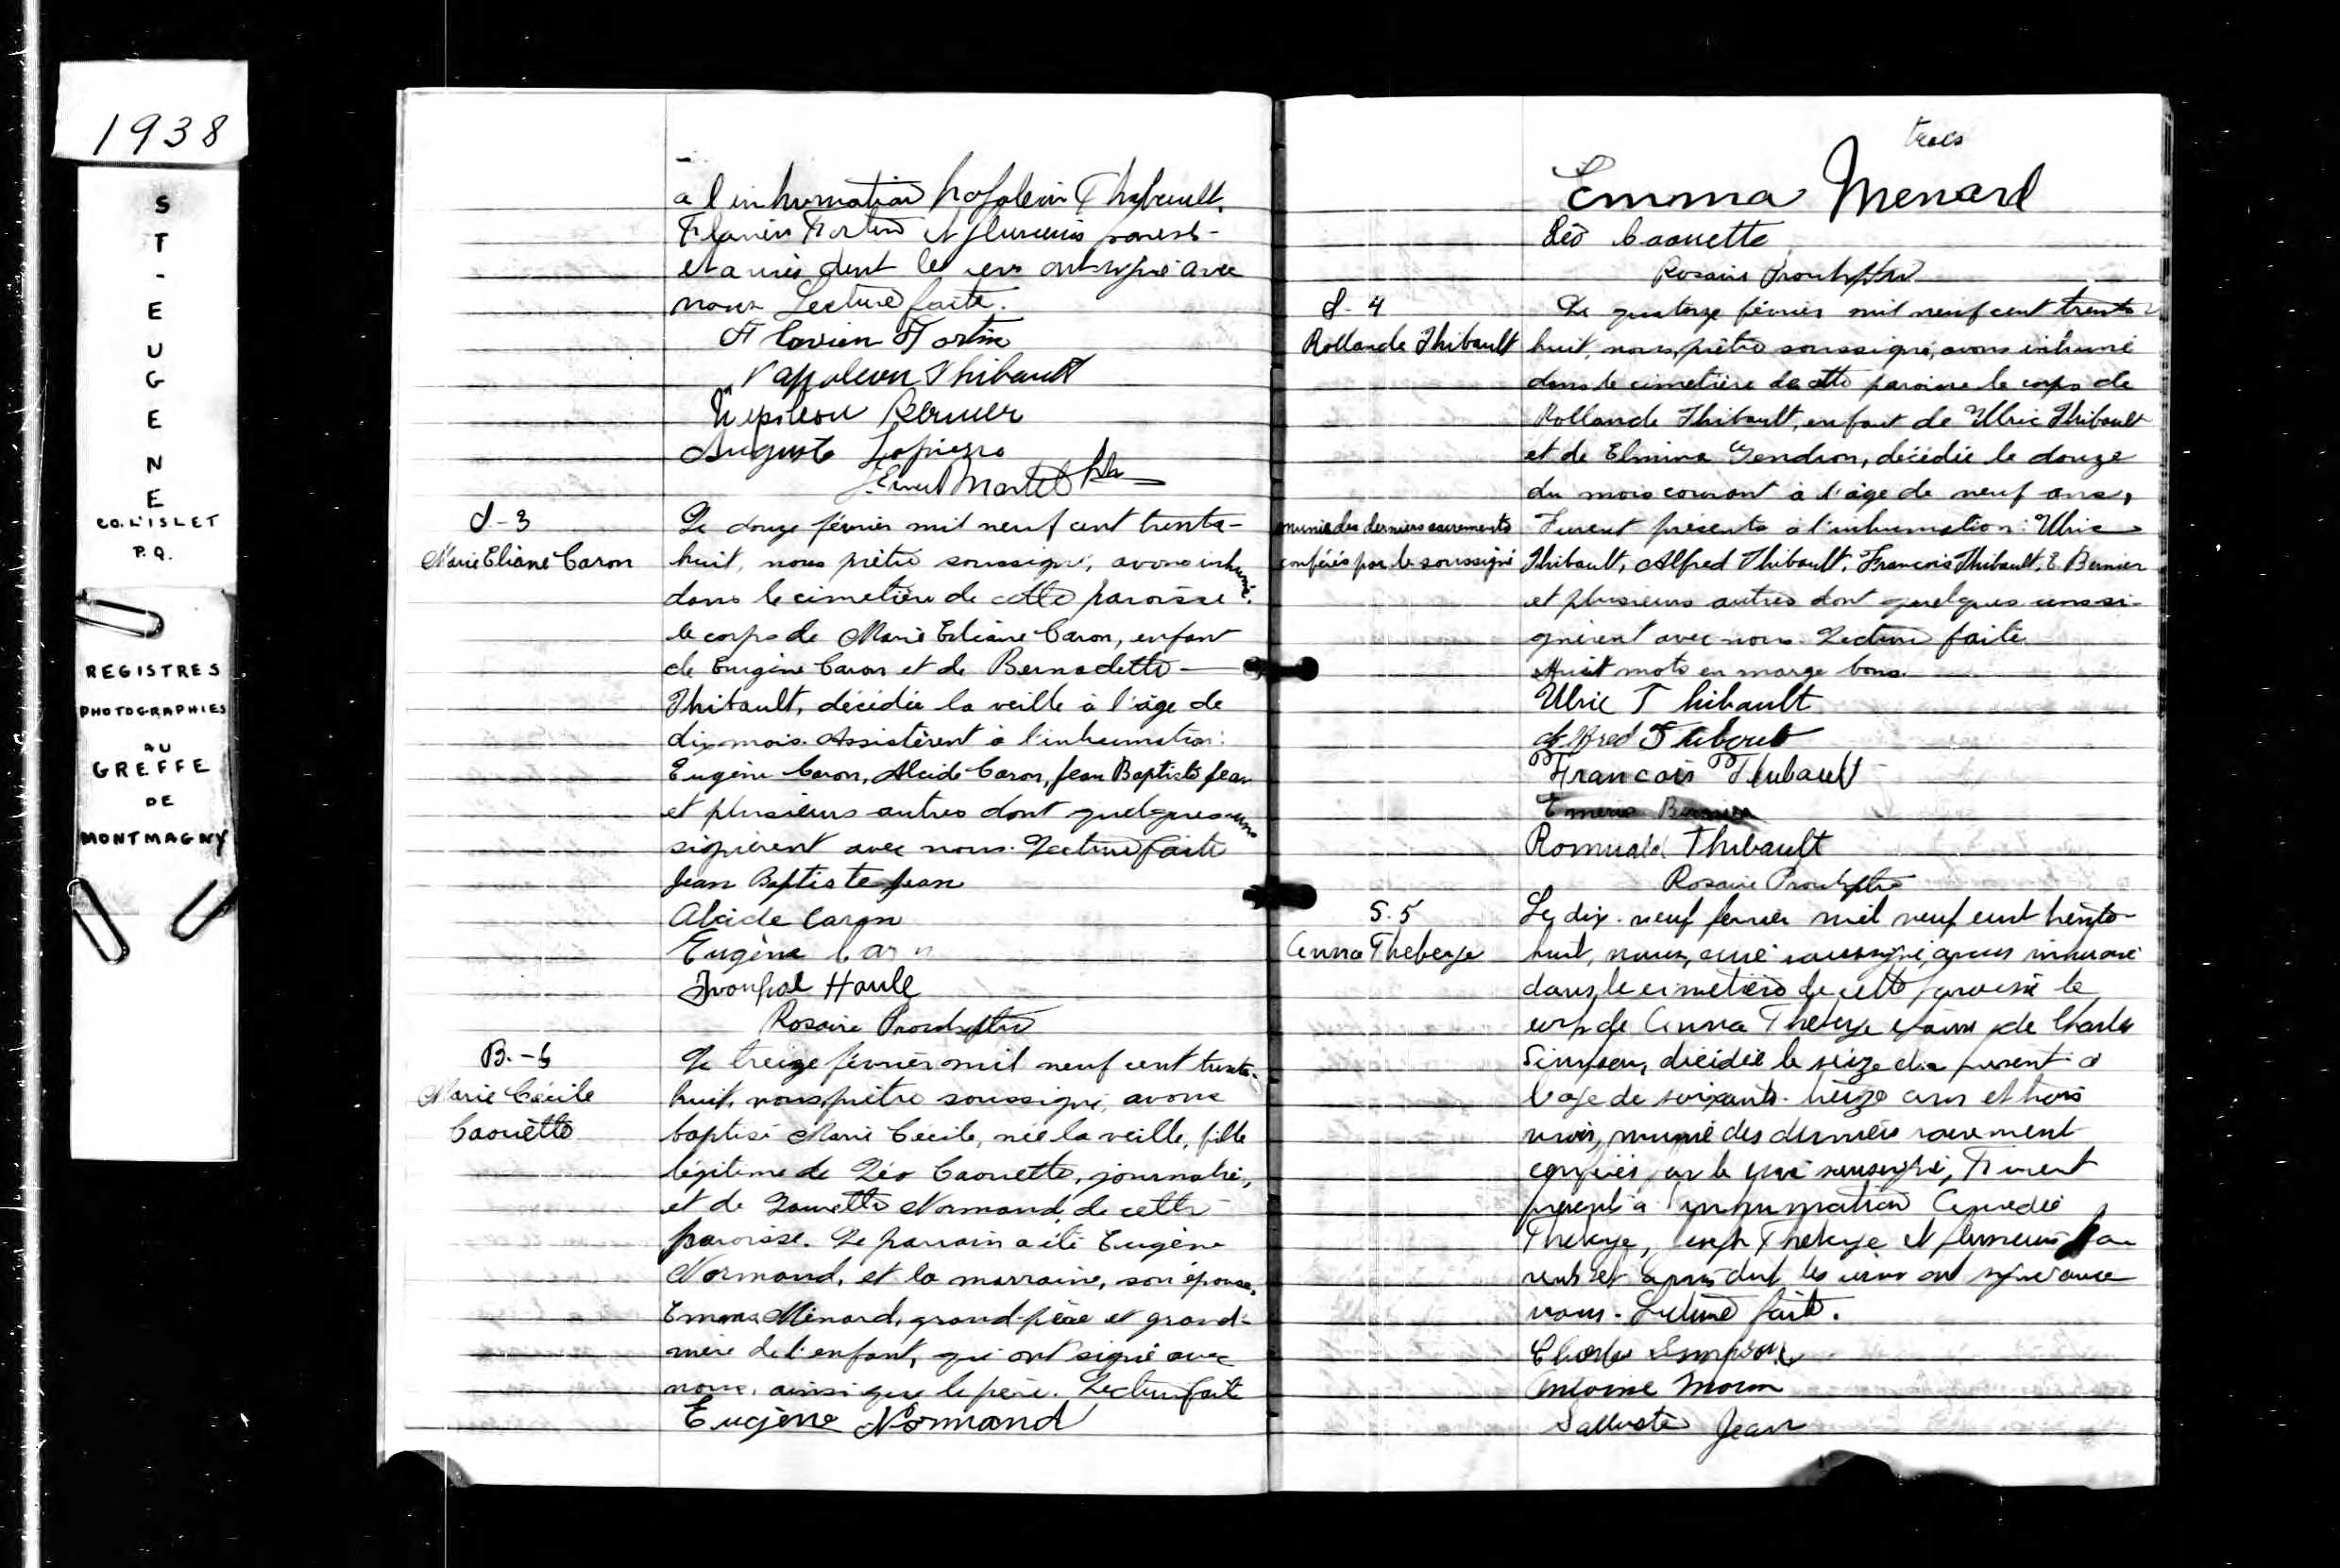 1938
ST-EUGENE
CO. L'ISLET
P.Q.
REGISTRES
PHOTOGRAPHIES
AU
GREFFE
DE
MONTMAGNY
a l'inhumation Napoleon Thibault,
Flavien Fortin et plusieurs parents
et amis dont les uns ont signé avec
nous Lecture faite.
Flavien Fortin
Napoleon Thibault
Napoleon Bernier
Auguste Lapierre
Martel Ptre
S-3
Marie Eliane Caron
Le douze février mil neuf cent trente-
huit, nous prêtre soussigné, avons inhumé
dans le cimetière de cette paroisse
le corps de Marie Eliane Caron, enfant
de Eugène Caron et de Bernadette
Thibault, décédée la veille à l'âge de
dix mois. Assistèrent à l'inhumation:
Eugène Caron, Alcide Caron, Jean Baptiste Jean
et plusieurs autres dont quelques uns
signèrent avec nous. Lecture faite
Jean Baptiste Jean
Alcide Caron
Eugène Caron
Houle
Rosaire Proulx ptre
B.-6
Marie Cécile
Caouette
Le treize février mil neuf cent trente-
huit, nous, prêtre soussigné, avons
baptisé Marie Cécile, née la veille, fille
légitime de Léo Caouette, journalier,
et de Normand, de cette
paroisse. Le parrain a été Eugène
Normand, et la marraine, son épouse,
Emma Ménard, grand-père et grand-
mère de l'enfant, qui ont signé avec
nous, ainsi que le père. Lecture faite
Eugène Normand
trois
Emma Menard
Léo Caouette
Rosaire Proulx ptre
S-4
Rollande Thibault
Le quatorze février mil neuf cent trente-
huit, nous, prêtre soussigné, avons inhumé
dans le cimetière de cette paroisse le corps de
Rollande Thibault, enfant de Ulric Thibault
et de Elmina Gendron, décédée le douze
du mois courant à l'âge de neuf ans,
munie des derniers sacrements
conférés par le soussigné
Furent présents à l'inhumation: Ulric
Thibault, Alfred Thibault, François Thibault, E Bernier
et plusieurs autres dont quelques uns si-
gnèrent avec nous. Lecture faite.
Huit mots en marge bons.
Ulric Thibault
Alfred Thibault
Francois Thibault
Emeric Bernier
Romuald Thibault
Rosaire Proulx ptre
S.5
Anna Theberge
Le dix-neuf fevrier mil neuf cent trente-
huit, nous, curé soussigné, avons inhumé
dans le cimetière de cette paroisse le
corps de Anna Theberge épouse de Charles
Simpson, décédée le seize du present a
l'age de soixante-treize ans et trois
mois, munie des derniers sacrement
conférés par le curé soussigné, Furent
present a l'inhumation Amedée
Theberge, Joseph Theberge et plusieurs pa
rents et amis dont les uns ont signé avec
nous. Lecture faite.
Charles Simpson
Antoine Morin
Salluste Jean